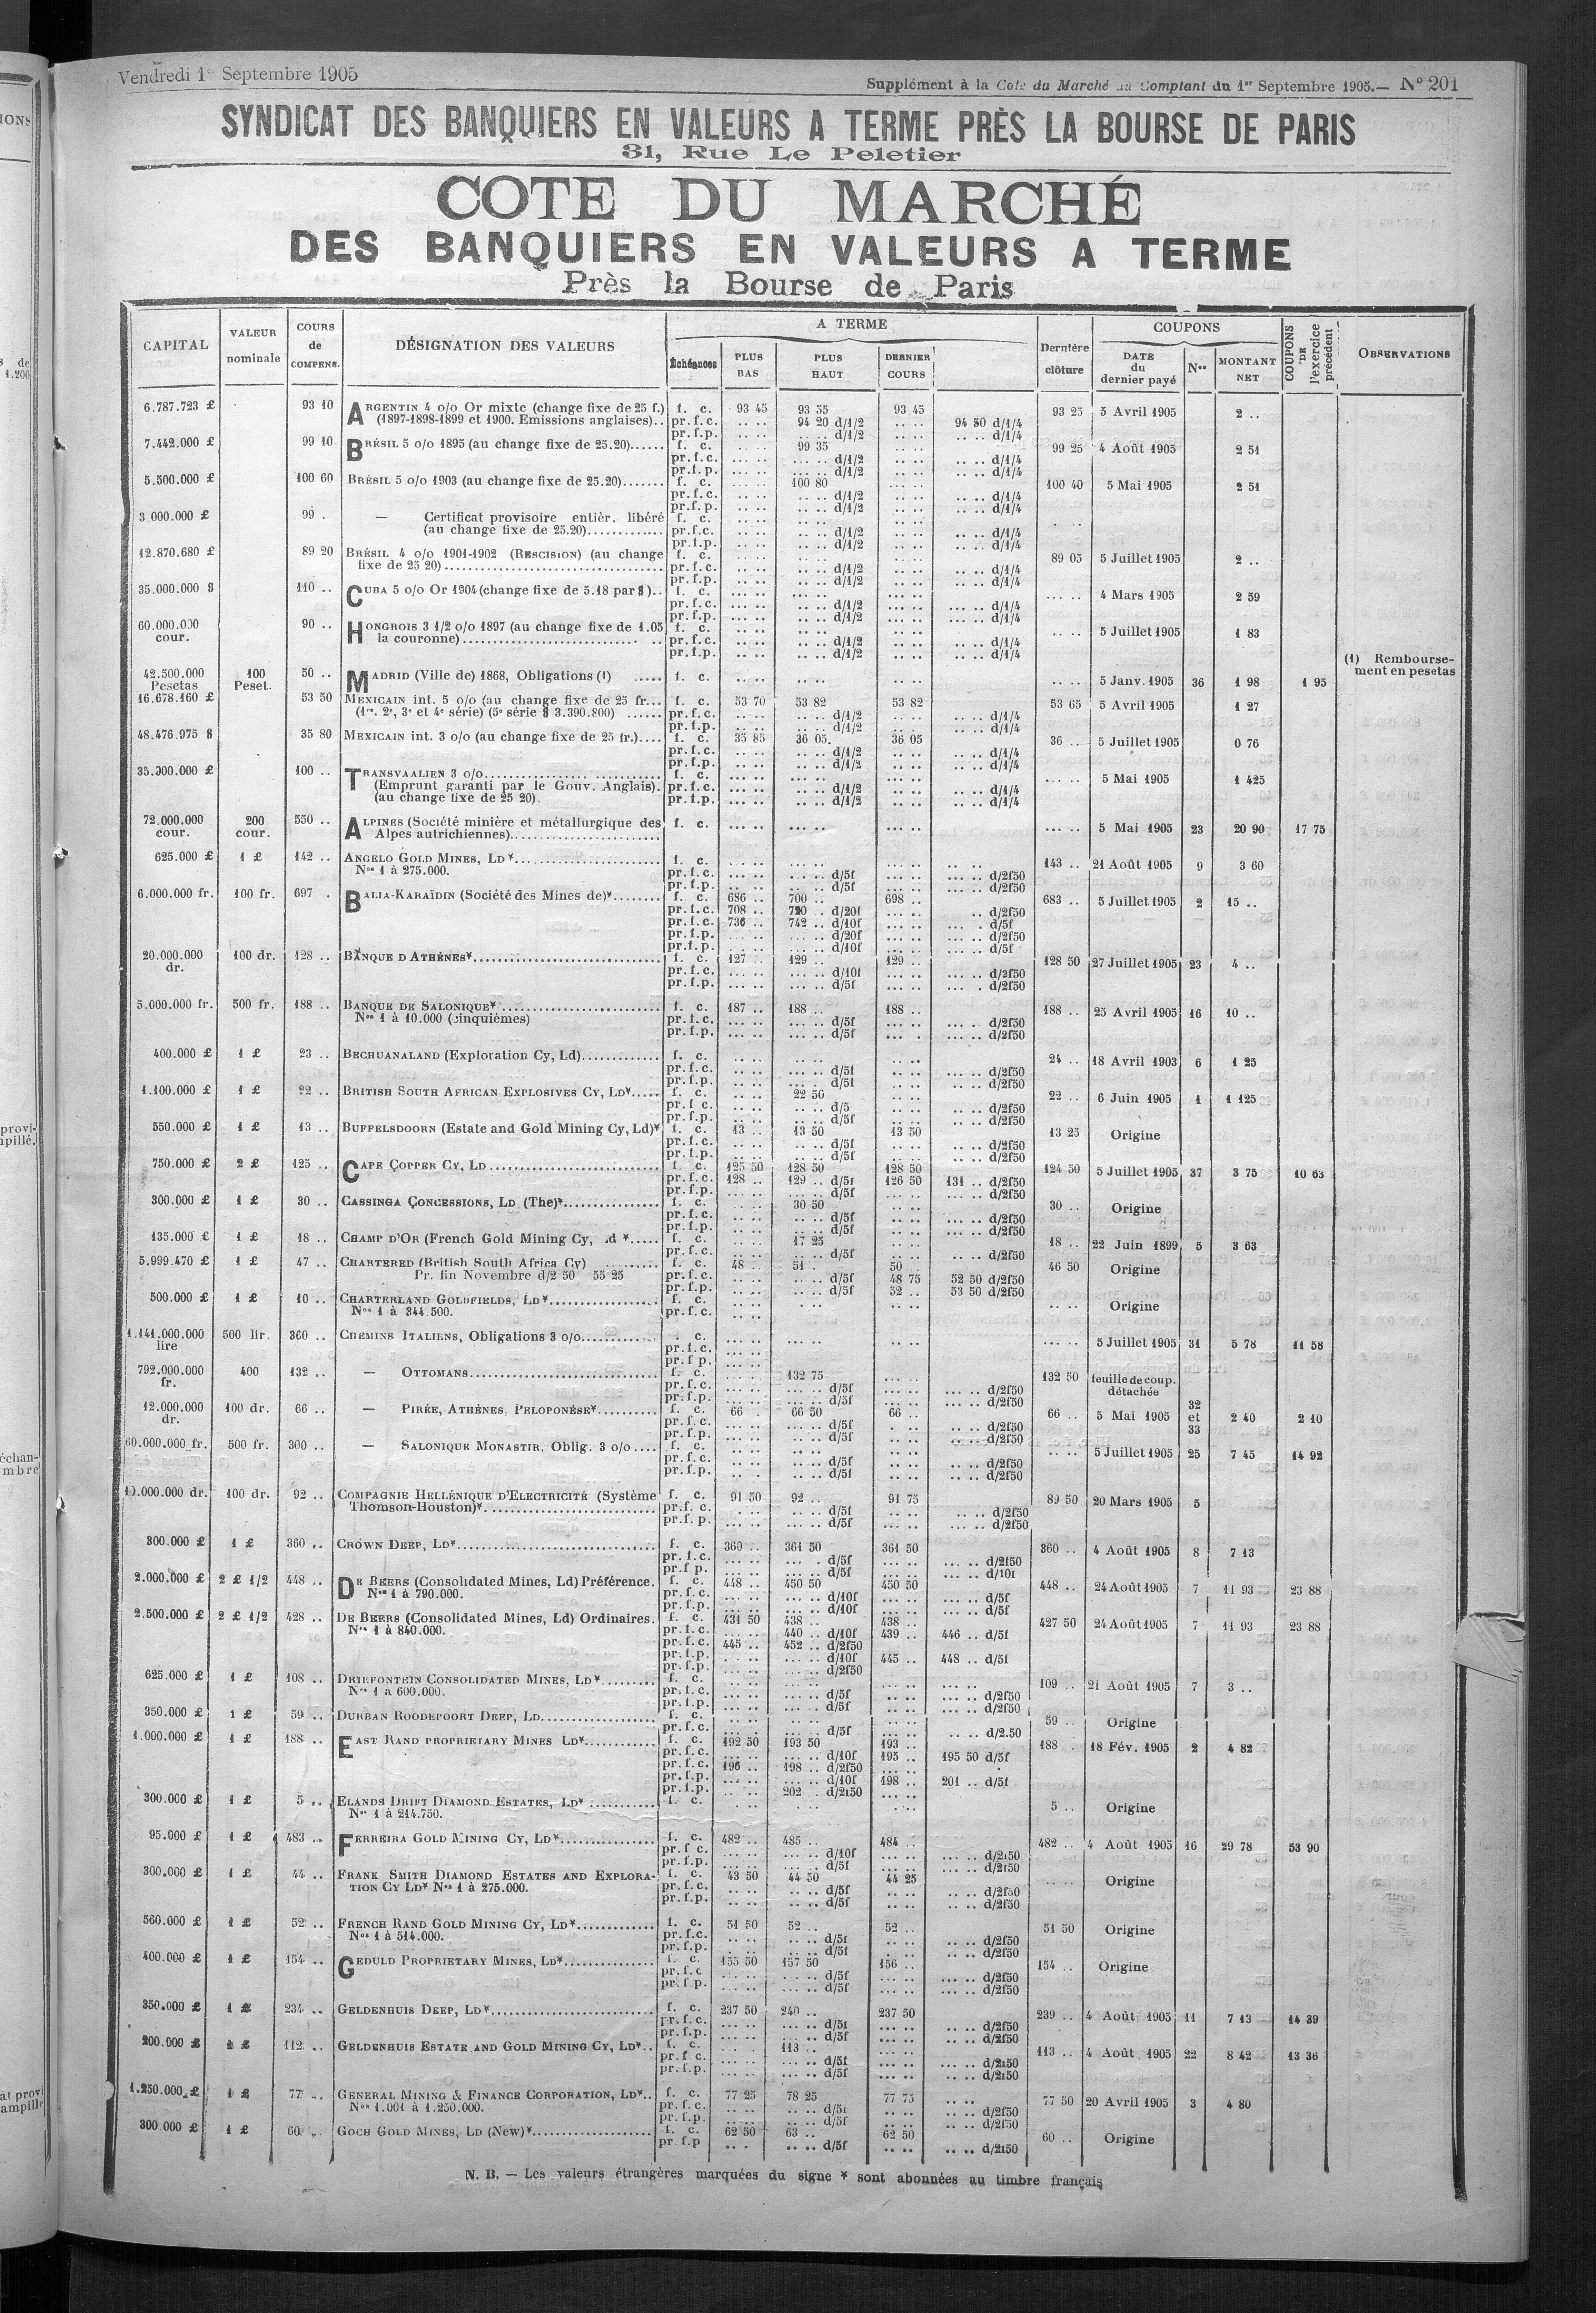 Vendredi 1er Septembre 1905
Supplément à la Cote du Marché au Comptant du 1er Septembre 1905.— N° 201
SYNDICAT DES BANQUIERS EN VALEURS A TERME PRÈS LA BOURSE DE PARIS
31, Rue Le Peletier
COTE DU MARCHÉ
DES BANQUIERS EN VALEURS A TERME
Près la Bourse de Paris
CAPITAL VALEUR nominale COURS de COMPENS. DÉSIGNATION DES VALEURS A TERME Échéances PLUS BAS PLUS HAUT DERNIER COURS Dernière clôture COUPONS DATE du dernier payé Nos MONTANT NET COUPONS DE l'exercice précédent OBSERVATIONS
6.787.723 £ 93 10 ARGENTIN 4 o/o Or mixte (change fixe de 25 f.) f. c. 93 45 93 55 93 45 93 25 5 Avril 1905 2 ..
(1897-1898-1899 et 1900. Emissions anglaises).. pr.f.c. .. .. 94 20 d/1/2 .. .. 94 50 d/1/4
pr.f.p. .. .. .. .. d/1/2 .. .. .. .. d/1/4
7.442.000 £ 99 10 BRÉSIL 5 o/o 1895 (au change fixe de 25.20)...... f. c. .. .. 99 35 99 25 4 Août 1905 2 51
pr.f.c. .. .. .. .. d/1/2 .. .. .. .. d/1/4
pr.f.p. .. .. .. .. d/1/2 .. .. .. .. d/1/4
5.500.000 £ 100 60 BRÉSIL 5 o/o 1903 (au change fixe de 25.20)....... f. c. .. .. 100 80 100 40 5 Mai 1905 2 51
pr.f.c. .. .. .. .. d/1/2 .. .. .. .. d/1/4
pr.f.p. .. .. .. .. d/1/2 .. .. .. .. d/1/4
3 000.000 £ 99 . — Certificat provisoire entièr. libéré f. c. .. .. .. .. .. ..
(au change fixe de 25.20)............. pr.f.c. .. .. .. .. d/1/2 .. .. .. .. d/1/4
pr.f.p. .. .. .. .. d/1/2 .. .. .. .. d/1/4
12.870.680 £ 89 20 BRÉSIL 4 o/o 1901-1902 (RESCISION) (au change f. c. .. .. .. .. .. .. 89 05 5 Juillet 1905 2 ..
fixe de 25 20)..................................... pr.f.c. .. .. .. .. d/1/2 .. .. .. .. d/1/4
pr.f.p. .. .. .. .. d/1/2 .. .. .. .. d/1/4
35.000.000 $ 110 .. CUBA 5 o/o Or 1904 (change fixe de 5.18 par $).. f. c. ... .. ... .. ... .. ... .. 4 Mars 1905 2 59
pr.f.c. ... .. .. .. d/1/2 ... .. ... .. d/1/4
pr.f.p. ... .. .. .. d/1/2 ... .. ... .. d/1/4
60.000.000 cour. 90 .. HONGROIS 3 1/2 o/o 1897 (au change fixe de 1.05 f. c. .. .. .. .. .. .. .. .. 5 Juillet 1905 1 83
la couronne)............................. .. pr.f.c. .. .. .. .. d/1/2 .. .. .. .. d/1/4
pr.f.p. .. .. .. .. d/1/2 .. .. .. .. d/1/4
(1) Remboursement en pesetas
42.500.000 Pesetas 100 Peset. 50 .. MADRID (Ville de) 1868, Obligations (1) ..... f. c. .. .. .. .. .. .. .. .. 5 Janv. 1905 36 1 98 1 95
16.678.160 £ 53 50 MEXICAIN int. 5 o/o (au change fixe de 25 fr... f. c. 53 70 53 82 53 82 53 65 5 Avril 1905 1 27
(1re. 2e, 3e et 4e série) (5e série $ 3.390.800) ...... pr.f.c. .. .. .. .. d/1/2 .. .. .. .. d/1/4
pr.f.p. .. .. .. .. d/1/2 .. .. .. .. d/1/4
48.476.975 $ 35 80 MEXICAIN int. 3 o/o (au change fixe de 25 fr.).... f. c. 35 85 36 05 36 05 36 .. 5 Juillet 1905 0 76
pr.f.c. .. .. .. .. d/1/2 .. .. .. .. d/1/4
pr.f.p. .. .. .. .. d/1/2 .. .. .. .. d/1/4
35.000.000 £ 100 .. TRANSVAALIEN 3 o/o............... ........... f. c. ... .. ... .. ... .. ... .. 5 Mai 1905 1 425
(Emprunt garanti par le Gouv. Anglais). pr.f.c. ... .. .. .. d/1/2 ... .. ... .. d/1/4
(au change fixe de 25 20). pr.f.p. ... .. .. .. d/1/2 ... .. ... .. d/1/4
72.000.000 cour. 200 cour. 550 .. ALPINES (Société minière et métallurgique des f. c. ... .. ... .. ... .. ... .. 5 Mai 1905 23 20 90 17 75
Alpes autrichiennes).........................
625.000 £ 1 £ 142 .. ANGELO GOLD MINES, LD*........................ f. c. ... .. ... .. ... .. 143 .. 21 Août 1905 9 3 60
Nos 1 à 275.000. pr.f.c. ... .. ... .. d/5f ... .. ... .. d/2f50
pr.f.p. ... .. ... .. d/5f ... .. ... .. d/2f50
6.000.000 fr. 100 fr. 697 . BALIA-KARAÏDIN (Société des Mines de)*........ f. c. 686 .. 700 .. 698 .. 683 .. 5 Juillet 1905 2 15 ..
pr.f.c. 708 .. 720 .. d/20f ... .. .. d/2f50
pr.f.c. 736 .. 742 .. d/10f ... .. ... . d/5f
pr.f.p. ... .. ... .. d/20f ... .. ... .. d/2f50
pr.f.p. ... .. ... .. d/10f ... .. ... .. d/5f
20.000.000 dr. 100 dr. 128 .. BANQUE D'ATHÈNES*............................... f. c. 127 .. 129 .. 129 .. 128 50 27 Juillet 1905 23 4 ..
pr.f.c. ... .. ... .. d/10f ... .. ... .. d/2f50
pr.f.p. ... .. ... .. d/5f ... .. ... .. d/2f50
5.000.000 fr. 500 fr. 188 .. BANQUE DE SALONIQUE* .......................... f. c. 187 .. 188 .. 188 .. 188 .. 25 Avril 1905 16 10 ..
Nos 1 à 10.000 (cinquièmes) pr.f.c. ... .. ... .. d/5f ... .. ... .. d/2f50
pr.f.p. ... .. ... .. d/5f ... .. ... .. d/2f50
400.000 £ 1 £ 23 .. BECHUANALAND (Exploration Cy, Ld)............. f. c. .. .. .. .. .. .. 24 .. 18 Avril 1903 6 1 25
pr.f.c. .. .. .. .. d/5f .. .. .. .. d/2f50
pr.f.p. .. .. .. .. d/5f .. .. .. .. d/2f50
1.100.000 £ 1 £ 22 .. BRITISH SOUTH AFRICAN EXPLOSIVES CY, LD*..... f. c. .. .. 22 50 22 .. 6 Juin 1905 1 1 125
pr.f c. .. .. .. .. d/5 .. .. .. .. d/2f50
pr.f.p. .. .. .. .. d/5f .. .. .. .. d/2f50
550.000 £ 1 £ 13 .. BUFFELSDOORN (Estate and Gold Mining Cy, Ld)* f. c. 13 .. 13 50 13 50 13 25 Origine
pr.f.c. .. .. .. .. d/5f .. .. .. .. d/2f50
pr.f.p. .. .. .. .. d/5f .. .. .. .. d/2f50
750.000 £ 2 £ 125 .. CAPE COPPER CY, LD ............................ f. c. 125 50 128 50 128 50 124 50 5 Juillet 1905 37 3 75 10 63
pr.f.c. 128 .. 129 .. d/5f 126 50 131 .. d/2f50
pr.f.p. .. .. .. .. d/5f .. .. .. .. d/2f50
300.000 £ 1 £ 30 .. CASSINGA CONCESSIONS, LD (The)*................ f. c. .. .. 30 50 30 .. Origine
pr.f.c. .. .. .. .. d/5f .. .. ... .. d/2f50
pr.f.p. .. .. .. .. d/5f .. .. ... .. d/2f50
135.000 £ 1 £ 18 .. CHAMP D'OR (French Gold Mining Cy, .d *..... f. c. .. .. 17 25 18 .. 22 Juin 1899 5 3 63
pr.f.c. .. .. .. .. d/5f .. .. .. .. d/2f50
5.999.470 £ 1 £ 47 .. CHARTERED (British South Africa Cy) ......... f. c. 48 .. 51 . 50 .. 46 50 Origine
Pr. fin Novembre d/2 50 55 25 pr.f.c. .. .. .. .. d/5f 48 75 52 50 d/2f50
pr.f.p. .. .. .. .. d/5f 52 .. 53 50 d/2f50
500.000 £ 1 £ 10 .. CHARTERLAND GOLDFIELDS, LD*................... f. c. .. .. .. .. .. .. .. .. Origine
Nos 1 à 344 500. pr.f.c.
1.141.000.000 lire 500 lir. 360 .. CHEMINS ITALIENS, Obligations 3 o/o............. . c. ... .. ... .. ... .. ... .. 5 Juillet 1905 31 5 78 11 58
pr.f.c. ... ..
pr.f p. ... ..
792.000.000 fr. 400 132 .. — OTTOMANS................................ f. c. ... . 132 75 132 50 feuille de coup. détachée
pr.f.c. ... .. ... .. d/5f ... .. ... .. d/2f50
pr.f.p. ... .. ... .. d/5f ... .. ... .. d/2f50
12.000.000 dr. 100 dr. 66 .. — PIRÉE, ATHÈNES, PELOPONÈSE*.......... f. c. 66 . 66 50 66 .. 66 .. 5 Mai 1905 32 et 33 2 40 2 10
pr.f.c. .. .. .. .. d/5f .. .. .. .. d/2f50
pr.f.p. .. .. .. .. d/5f .. .. .. .. d/2f50
60.000.000 fr. 500 fr. 300 .. — SALONIQUE MONASTIR, Oblig. 3 o/o.... f. c. .. .. .. .. .. .. .. .. 5 Juillet 1905 25 7 45 14 92
pr.f.c. .. .. .. .. d/5f .. .. .. .. d/2f50
pr.f.p. .. .. .. .. d/5f .. .. .. .. d/2f50
10.000.000 dr. 100 dr. 92 .. COMPAGNIE HELLÉNIQUE D'ELECTRICITÉ (Système f. c. 91 50 92 .. 91 75 89 50 20 Mars 1905 5
Thomson-Houston)*............................. pr.f.c. .. .. .. .. d/5f .. .. .. .. d/2f50
pr.f.p. ... .. ... .. d/5f .. .. .. .. d/2f50
300.000 £ 1 £ 360 .. CROWN DEEP, LD*................................. f. c. 360 .. 361 50 361 50 360 .. 4 Août 1905 8 7 13
pr.f.c. ... .. ... . d/5f ... .. ... .. d/2f50
pr.f p. ... .. ... .. d/5f ... .. ... .. d/10f
2.000.000 £ 2 £ 1/2 448 .. DE BEERS (Consolidated Mines, Ld) Préférence. f. c. 448 .. 450 50 450 50 448 .. 24 Août 1905 7 11 93 23 88
Nos 1 à 790.000. pr.f.c. ... .. ... .. d/10f ... .. ... .. d/5f
pr.f.p. ... .. ... .. d/10f ... .. ... .. d/5f
2.500.000 £ 2 £ 1/2 428 .. DE BEERS (Consolidated Mines, Ld) Ordinaires. f. c. 431 50 438 .. 438 .. 427 50 24 Août 1905 7 11 93 23 88
Nos 1 à 840.000. pr.f.c. ... .. 440 .. d/10f 439 .. 446 .. d/5f
pr.f.c. 445 .. 452 .. d/2f50
pr.f.p. ... .. ... .. d/10f 445 .. 448 .. d/5f
pr.f.p. ... .. ... .. d/2f50
625.000 £ 1 £ 108 .. DRIEFONTEIN CONSOLIDATED MINES, LD*......... f. c. ... .. ... .. ... .. 109 .. 21 Août 1905 7 3 ..
Nos 1 à 600.000. pr.f.c. ... .. ... .. d/5f .. .. ... .. d/2f50
pr.f.p. ... .. ... .. d/5f .. .. ... .. d/2f50
350.000 £ 1 £ 59 .. DURBAN ROODEPOORT DEEP, LD................... f. c. .. .. .. .. .. .. 59 .. Origine
pr.f.c. .. .. .. .. d/5f .. .. .. .. d/2.50
1.000.000 £ 1 £ 188 .. EAST RAND PROPRIETARY MINES LD*............ f. c. 192 50 193 50 193 .. 188 . 18 Fév. 1905 2 4 82
pr.f.c. ... .. ... .. d/10f 195 .. 195 50 d/5f
pr.f.c. 196 .. 198 .. d/2f50 ... ..
pr.f.p. ... .. ... .. d/10f 198 .. 201 .. d/5f
pr.f.p. ... .. 202 .. d/2f50 ... ..
300.000 £ 1 £ 5 .. ELANDS DRIFT DIAMOND ESTATES, LD* ........... f. c. . .. .. .. . .. 5 .. Origine
Nos 1 à 214.750.
95.000 £ 1 £ 483 .. FERREIRA GOLD MINING CY, LD*................ f. c. 482 .. 485 .. 484 .. 482 .. 4 Août 1905 16 29 78 53 90
pr.f c. ... .. ... .. d/10f ... .. ... .. d/2f50
pr.f.p. ... .. ... .. d/5f ... .. ... .. d/2f50
300.000 £ 1 £ 44 .. FRANK SMITH DIAMOND ESTATES AND EXPLORA- f. c. 43 50 44 50 44 25 .. .. Origine
TION CY LD* Nos 1 à 275.000. pr.f.c. .. .. .. .. d/5f .. .. .. .. d/2f50
pr.f.p. .. .. .. .. d/5f .. .. .. .. d/2f50
560.000 £ 1 £ 52 .. FRENCH RAND GOLD MINING CY, LD*............. f. c. 51 50 52 .. 52 .. 51 50 Origine
Nos 1 à 514.000. pr.f.c. .. .. .. .. d/5f .. .. .. .. d/2f50
pr.f.p. .. .. .. .. d/5f .. .. .. .. d/2f50
400.000 £ 1 £ 154 .. GEDULD PROPRIETARY MINES, LD*............... f. c. 155 50 157 50 156 .. 154 .. Origine
pr.f.c ... .. ... .. d/5f ... .. ... .. d/2f50
pr.f.p. ... .. ... .. d/5f ... .. ... .. d/2f50
350.000 £ 1 £ 234 .. GELDENHUIS DEEP, LD*........................... f. c. 237 50 240 .. 237 50 239 .. 4 Août 1905 11 7 13 14 39
pr.f.c. ... .. ... .. d/5f ... .. .. .. d/2f50
pr.f.p. ... .. ... .. d/5f ... .. .. .. d/2f50
200.000 £ 1 £ 112 .. GELDENHUIS ESTATE AND GOLD MINING CY, LD*.. f. c. ... .. 113 .. 113 .. 4 Août 1905 22 8 42 13 36
pr.f c. ... .. ... .. d/5f ... .. ... .. d/2f50
pr.f.p. ... .. ... .. d/5f ... .. ... .. d/2f50
1.250.000 £ 1 £ 77 .. GENERAL MINING & FINANCE CORPORATION, LD*.. f. c. 77 25 78 25 77 75 77 50 20 Avril 1905 3 4 80
Nos 1.001 à 1.250.000. pr.f.c. .. .. .. .. d/5f .. .. .. .. d/2f50
pr.f.p. .. .. .. .. d/5f .. .. .. .. d/2f50
300 000 £ 1 £ 60 .. GOCH GOLD MINES, LD (New)*.................... f. c. 62 50 63 .. 62 50 60 .. Origine
pr.f.p .. . .. .. d/5f .. .. .. .. d/2f50
N. B. — Les valeurs étrangères marquées du signe * sont abonnées au timbre français